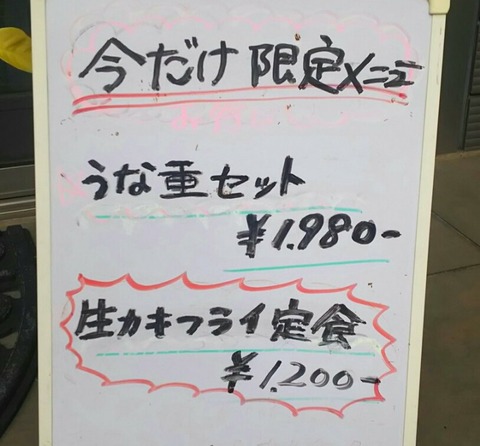 今だけ限定メニュー
うな重セット
¥1.980-
生カキフライ定食
¥1.200-